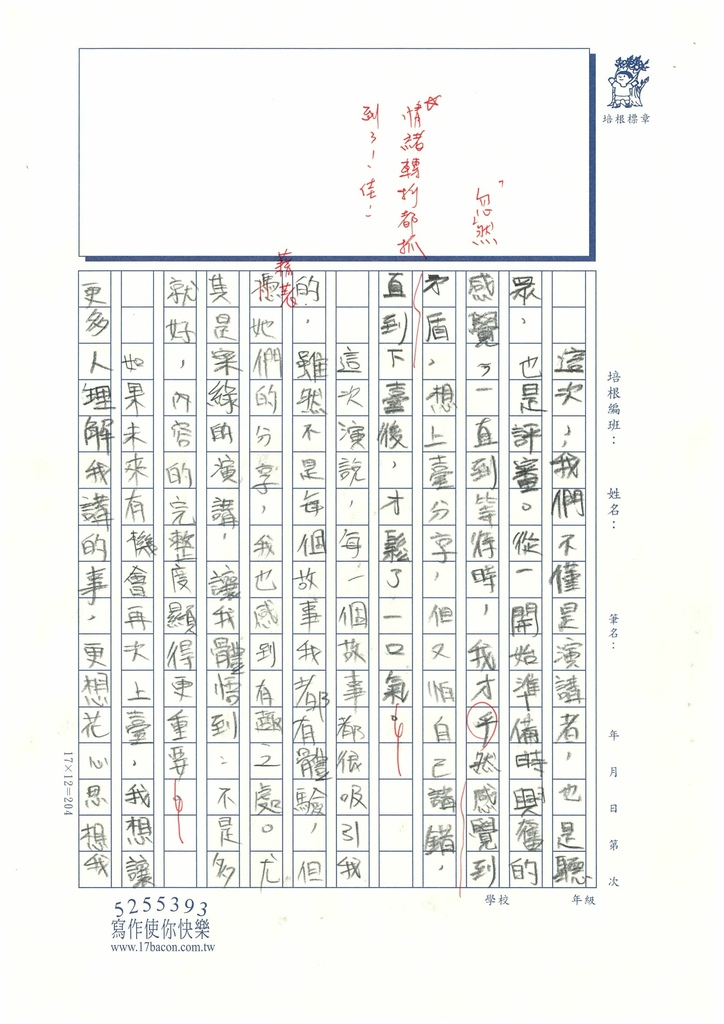 培根標章
「忽然
情緒轉折都抓
到了！佳！
培根編班：
姓名：
筆名：
年 月 日 第 次
學校 年級
這次，我們不僅是演講者，也是聽
眾，也是評審。從一開始準備時興奮的
感覺，一直到等待時，我才乎然感覺到
矛盾，想上臺分享，但又怕自己講錯，
直到下臺後，才鬆了一口氣。
這次演說，每一個故事都很吸引我
的，雖然不是每個故事我都有體驗，但
藉著
憑她們的分享，我也感到有趣之處。尤
其是宷綠的演講，讓我體悟到：不是多
就好，內容的完整度顯得更重要。
如果未來有機會再次上臺，我想讓
更多人理解我講的事，更想花心思想我
17×12=204
5255393
寫作使你快樂
www.17bacon.com.tw